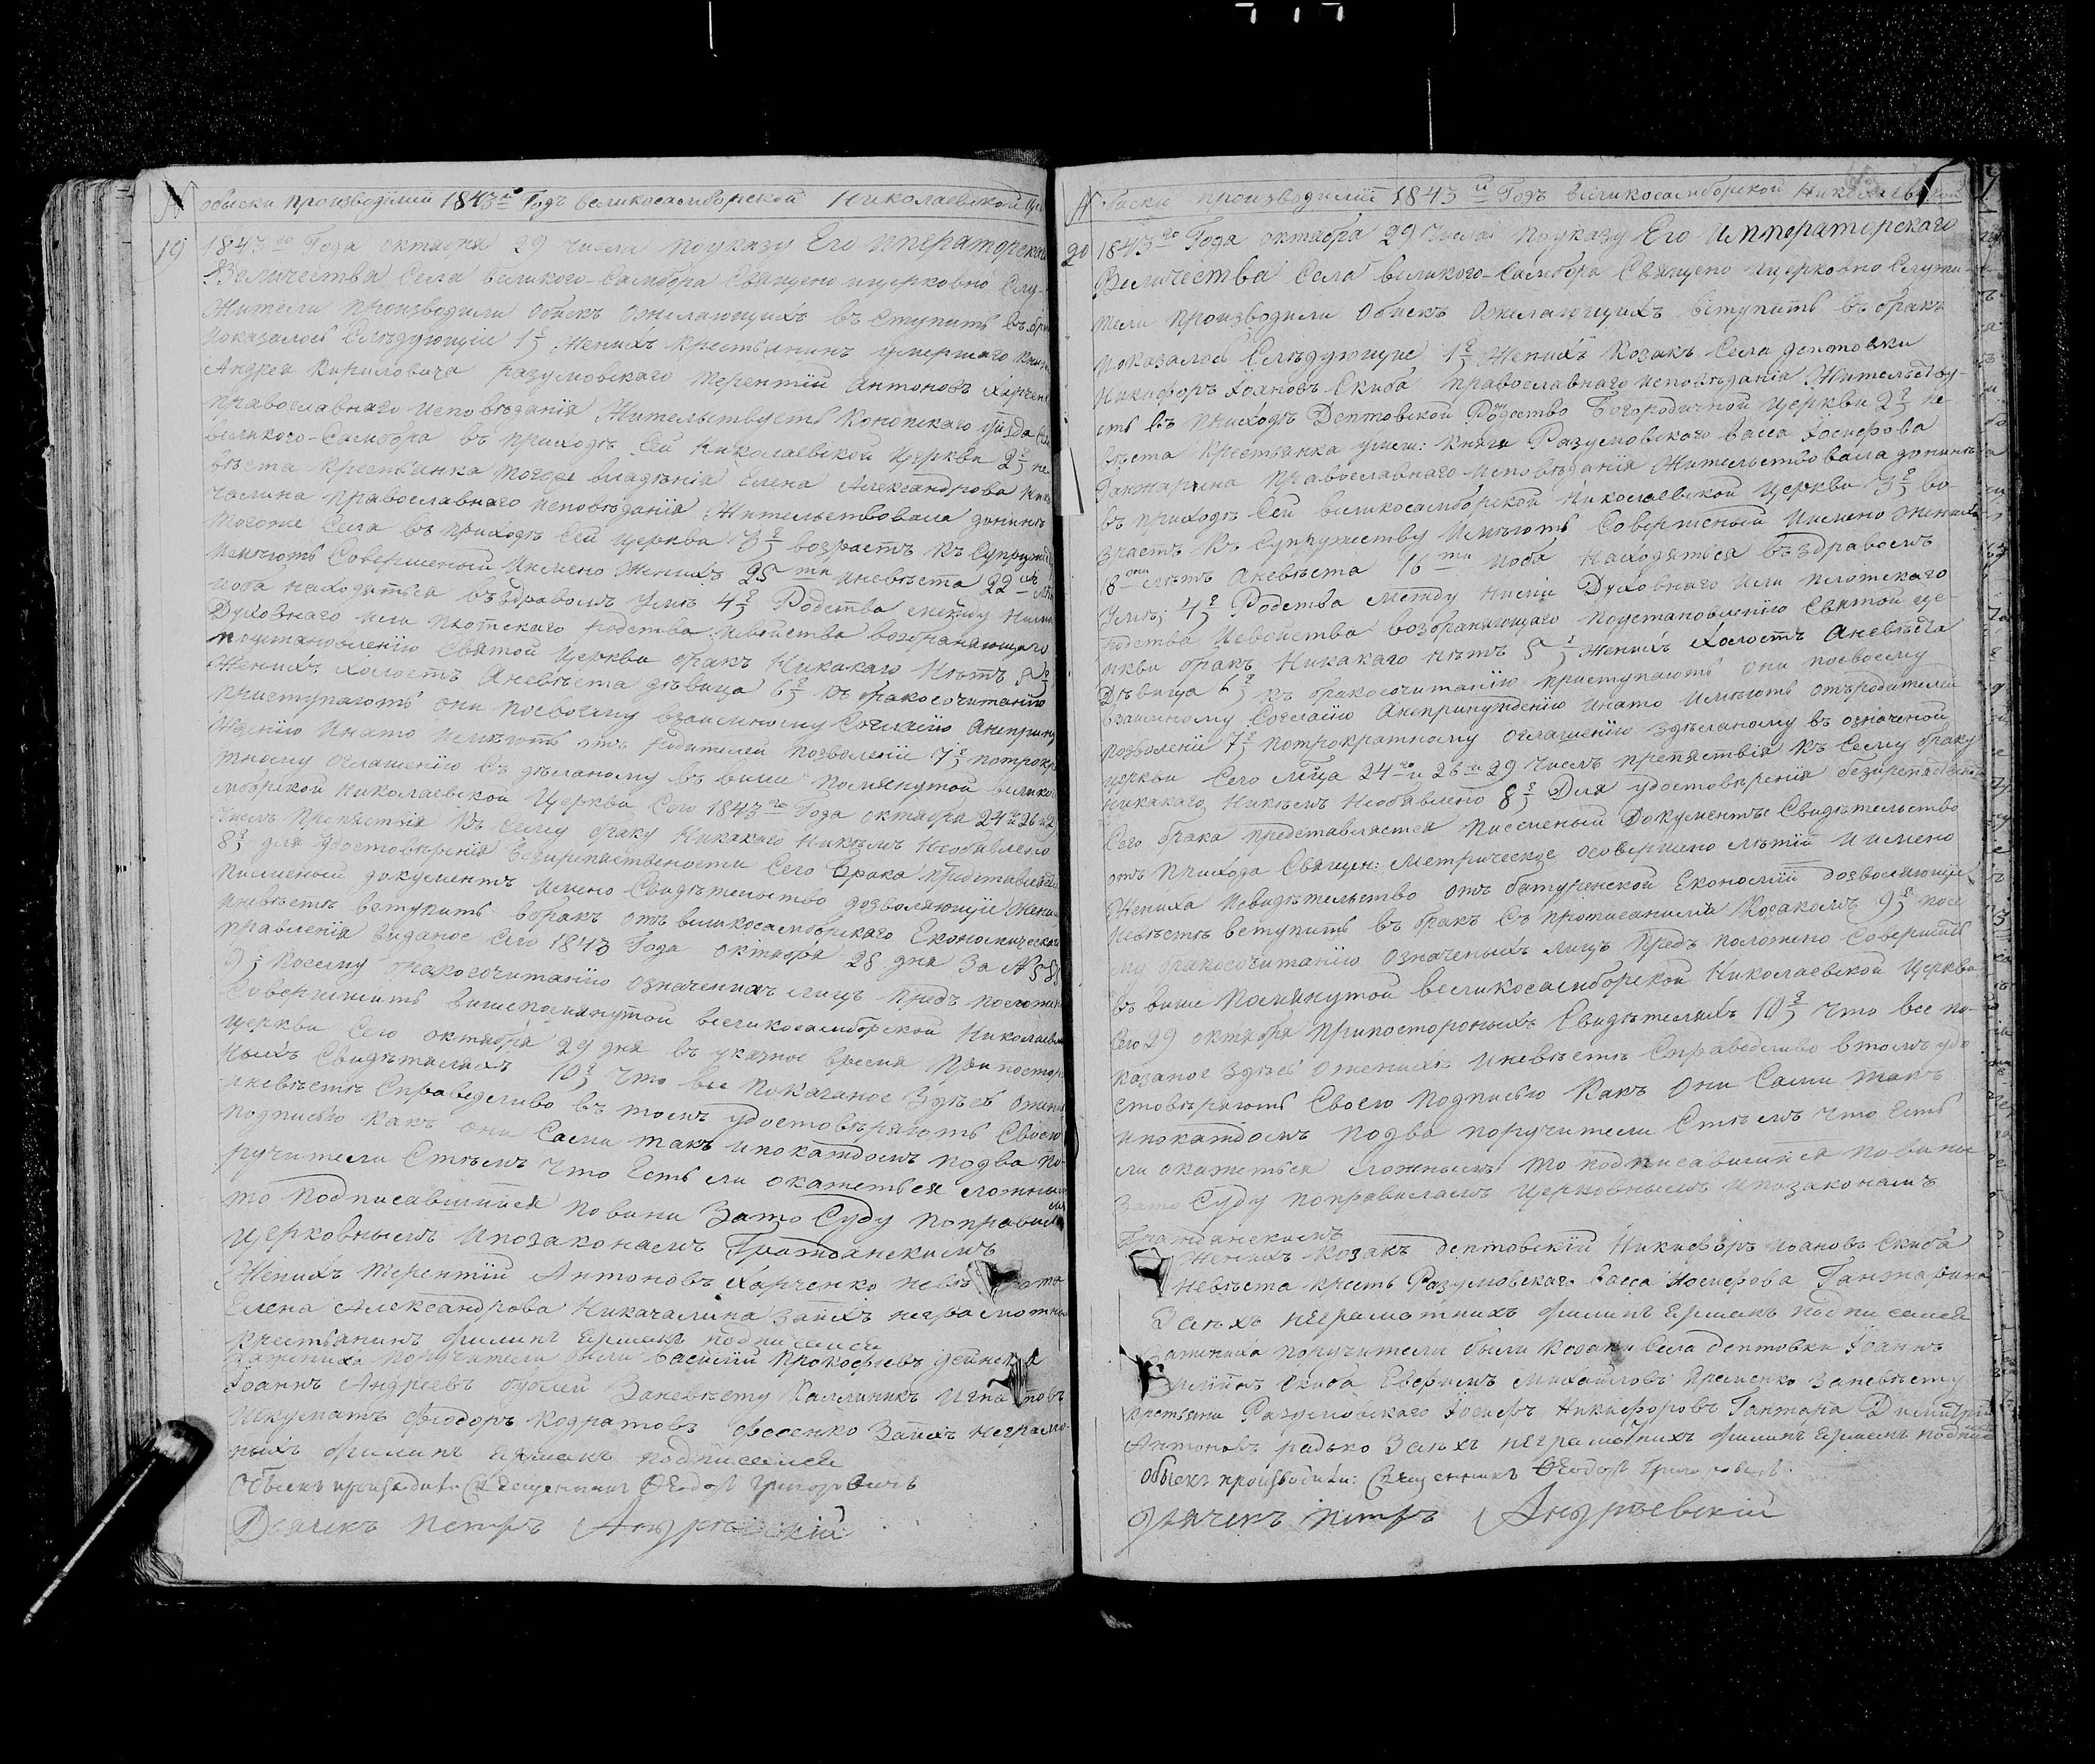 № обыски производимїи 1843й Годъ великосамборской Николаевской
19 1843го Года октября 29 числа поуказу Его Императорска
Величества Села великого-Самбора Священо ицерковно Слу-
жители производили обыскъ ожелающихъ въ ступить въ бра
показалось Слѣдующїе 1е, Женихъ крестьянинъ умершаго князя
Андрея Кириловича разумовскаго терентїй антоновъ харчен
православнаго исповѣданїя Жительствуетъ Конотскаго уѣзда Сел
великого-Самбора въ приходѣ Сей николаевской церкви 2е, не
вѣста крестьянка тогоже владѣнїя Елена Александрова Ника
чалина православнаго исповѣданїя Жительствовала донинѣ
тогоже Села въ приходѣ Сей церкви 3е, возрастъ къ Супружес
имѣютъ Совершеный имено женихъ 25ти иневѣста 22хъ лѣт
иоба находяться въздравомъ умѣ 4е, Родства между ними
Духовнаго или плотскаго родства исвойства возбраняющаго
поустановленїю Святой церкви бракъ никакаго нѣтъ 5е,
Женихъ холостъ аневѣста дѣвица 6е, къ бракосочитанїю
приступаютъ они посвоему взаимному Согласїю анеприну
жденїю инато имѣютъ отъ родителей позволенїе 7е, потрокра
тному оглашенїю Съ дѣланому въ више помянутой велико
мборской николаевской церкви Сего 1843го Года октября 24го 26 и 2
числъ препятствїя къ сему браку никакаго никѣмъ необявлено
8е, для удостовѣренїя безпрепятствености Сего брака представляет
писменый документъ имено Свидѣтельство дозволяющїе жени
иневѣстѣ вступить вбракъ отъ великосамборскаго Економическаг
правленїя виданое Сего 1843 Года октября 28 дня за №
9е, посему бракосочитанїю означенихъ лицъ предъ положен
Совершить вишепомянутой великосамборской Николаевс
церкви Сего октября 29 дня въ указное время при постор
ныхъ Свидѣтеляхъ 10е, что все показаное здѣсь ожени
иневѣстѣ Справедливо въ томъ удостовѣряютъ Своею
подписью какъ они Сами такъ ипокаждомъ подва по-
ручители Стѣмъ что Есть ли окажеться ложны
то подписавшїися повини зато Суду поправила
церковнымъ ипозаконамъ Гражданскимъ
Женихъ терентїй Антоновъ Харченко невѣста
Елена Александрова Никачалина заихъ неграмотны
крестьянинъ филипъ ермакъ подписался
Зажениха поручители были василїй Прокофьевъ дейнека
Іоаннъ Андреевъ бублей Заневѣсту Каллиникъ Игнатовъ
Шкуматъ феодоръ кодратовъ фесенко Заихъ неграмо
ныхъ филипъ ермакъ подписался
Обыскъ производили: Священникъ Ѳеодоръ Григоровичъ
Дьячекъ петръ Андрѣевскїй
№ обыски производимїи 1843й Годъ великосамборской Николаевской
20 1843го Года октября 29 числа поуказу Его Императорскаго
Величества Села великого-Самбора Священо ицерковно Служи-
тели производили обискъ ожелающихъ вступить въ бракъ
показалось Слѣдующїе 1е, Женихъ Козакъ Села дептовки
никифоръ Іоановъ Скиба православнаго исповѣданїя Жительству-
еть въ приходѣ Дептовской Рождество Богородичной церкви 2е, не-
вѣста крестьянка умеш: князя Разумовскаго васса Іосифова
Ганжарина православнаго исповѣданїя Жительствовала донинѣ
въ приходѣ Сей великосамборской николаевской церкви 3е, во
зрастъ къ Супружеству имѣютъ Совершеный имено женихъ
18ти лѣтъ аневѣста 16ти иоба находяться въздравомъ
умѣ; 4е, Родства между ними Духовнаго или плотскаго
родства исвойства возбраняющаго поустановленїю Святой це-
ркви бракъ никакаго нѣтъ 5е, женихъ холостъ аневѣста
дѣвица 6е, къ бракосочитанїю приступаютъ они посвоему
взаимному Согласїю анепринужденїю инато имѣютъ отъродителей
позволенїе 7е, потрократному оглашенїю здѣланому въ означеной
церкви Сего мѣца 24го и 26 и 29 числъ препятствїя къ Сему браку
никакаго никѣмъ необявлено 8е, Для удостовѣренїя безпрепятствености
Сего брака представляется писменый документъ Свидѣтельство
отъ прихода Священ: метрическое осовершено лѣтїи имено
Жениха исвидѣтельство отъ батуренской Економїи дозволяющїе
невѣстѣ вступить въ бракъ Съ прописанимъ Козакомъ 9е, посе
му бракосочитанїю означеныхъ лицъ предъ положено Совершить
въ више помянутой великосамборской Николаевской церкви
Сего 29 октября припостороныхъ Свидѣтеляхъ 10е, что все по-
казаное здѣсь оженихѣ иневѣстѣ Справедливо втомъ удо
стовѣряютъ Своею подписью какъ они Сами такъ
ипокаждомъ подва поручители Стѣмъ что Есть
ли окажеться ложнымъ то подписавшїися повины
зато Суду поправиламъ церковнымъ ипозаконамъ
Гражданскимъ
Женихъ козакъ дептовскїй Никифоръ Іоановъ Скиба
Невѣста кресть Разумовскаго васса Іосифова Ганжарина
Заихъ неграмотнихъ филипъ Ермакъ подписался
Зажениха поручители были козаки Села дептовки Іоаннъ
Скиба Евфимъ михайловъ Яременко Заневѣсту
крестьяни Разумовскаго Іосифъ Никифоровъ Ганжара Димитрїй
Антоновъ радько Заихъ неграмотнихъ филипъ Ермакъ подпис
Обыскъ производили: Священникъ Ѳеодоръ Григоровичъ.
Дьячекъ петръ Андрѣевскїй